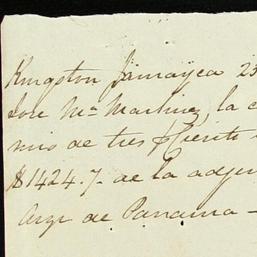 Kingston Jamayca 23
José Ma. Martinez, la c
mio de tres p%ciento
$1424.7. de la adju
de Panamá –